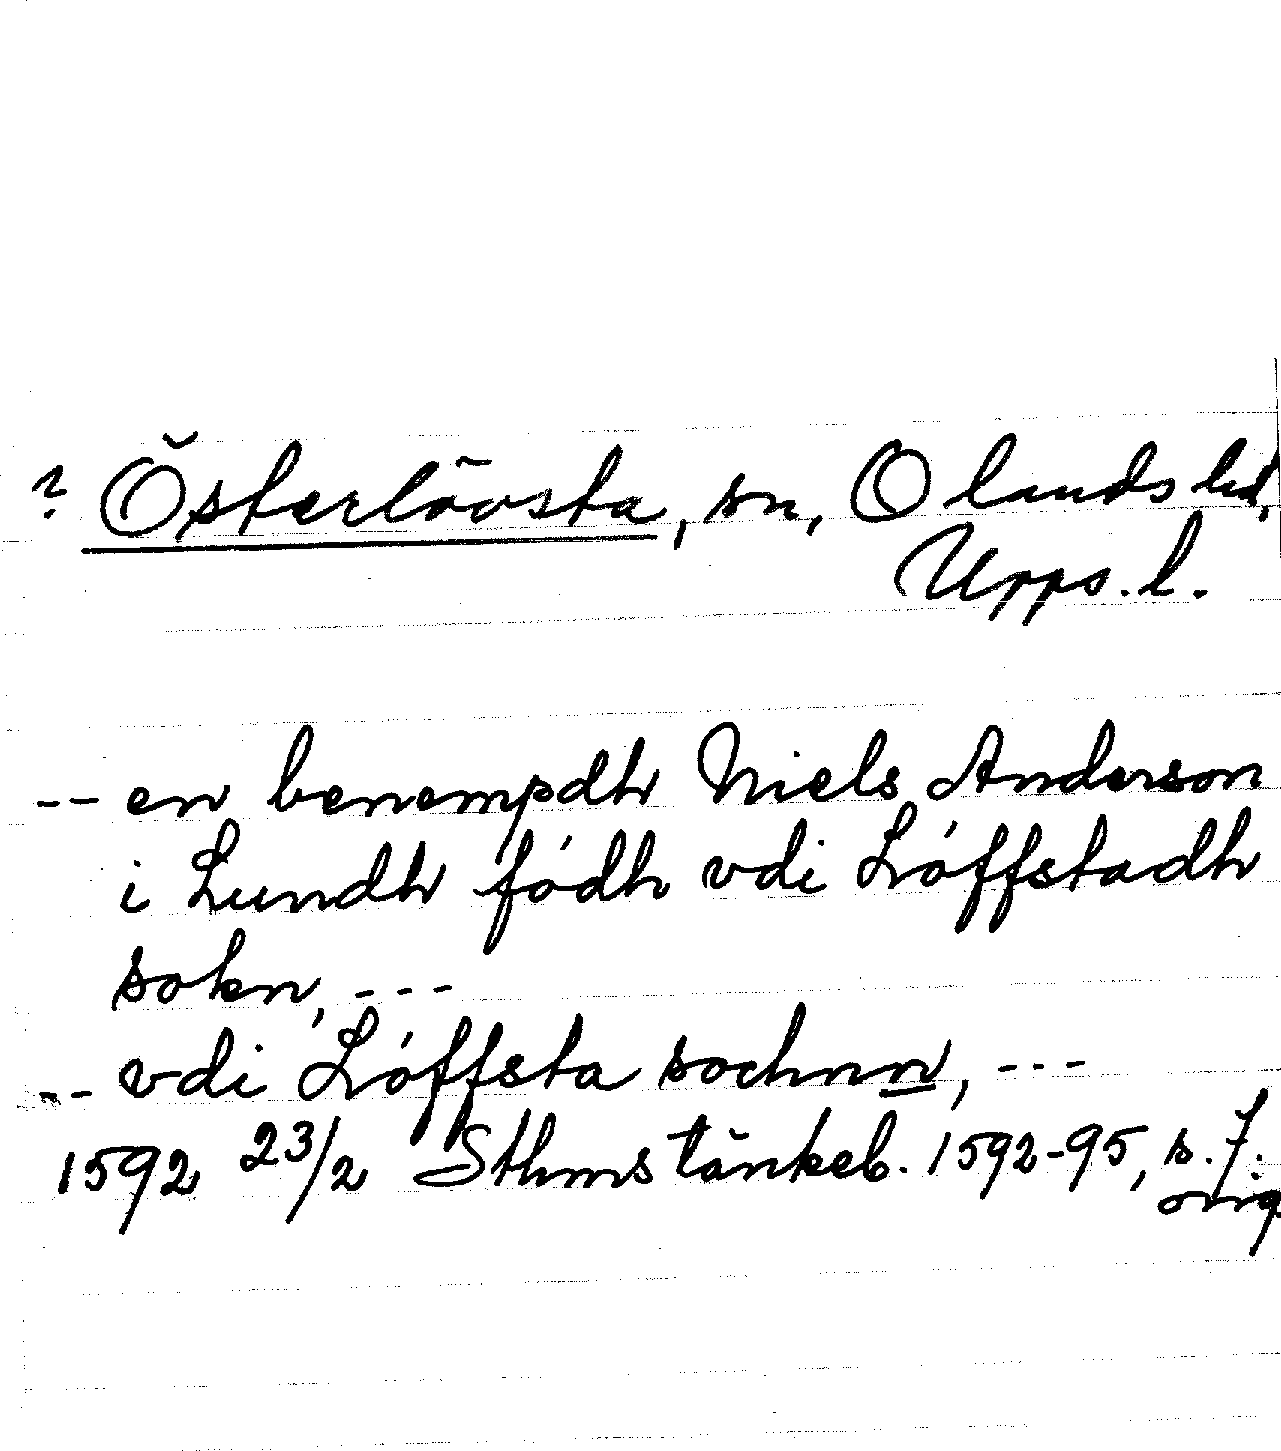 ? Österlövsta, sn, Olands hd,
Upps. l.
-- en benempdh Niels Anderson
i Lundh fódh vdi Lóffstadh
sokn, ---
-- vdi Lóffsta sochnn, ---
1592 23/2 Sthms tänkeb. 1592-95, s. 7.
orig